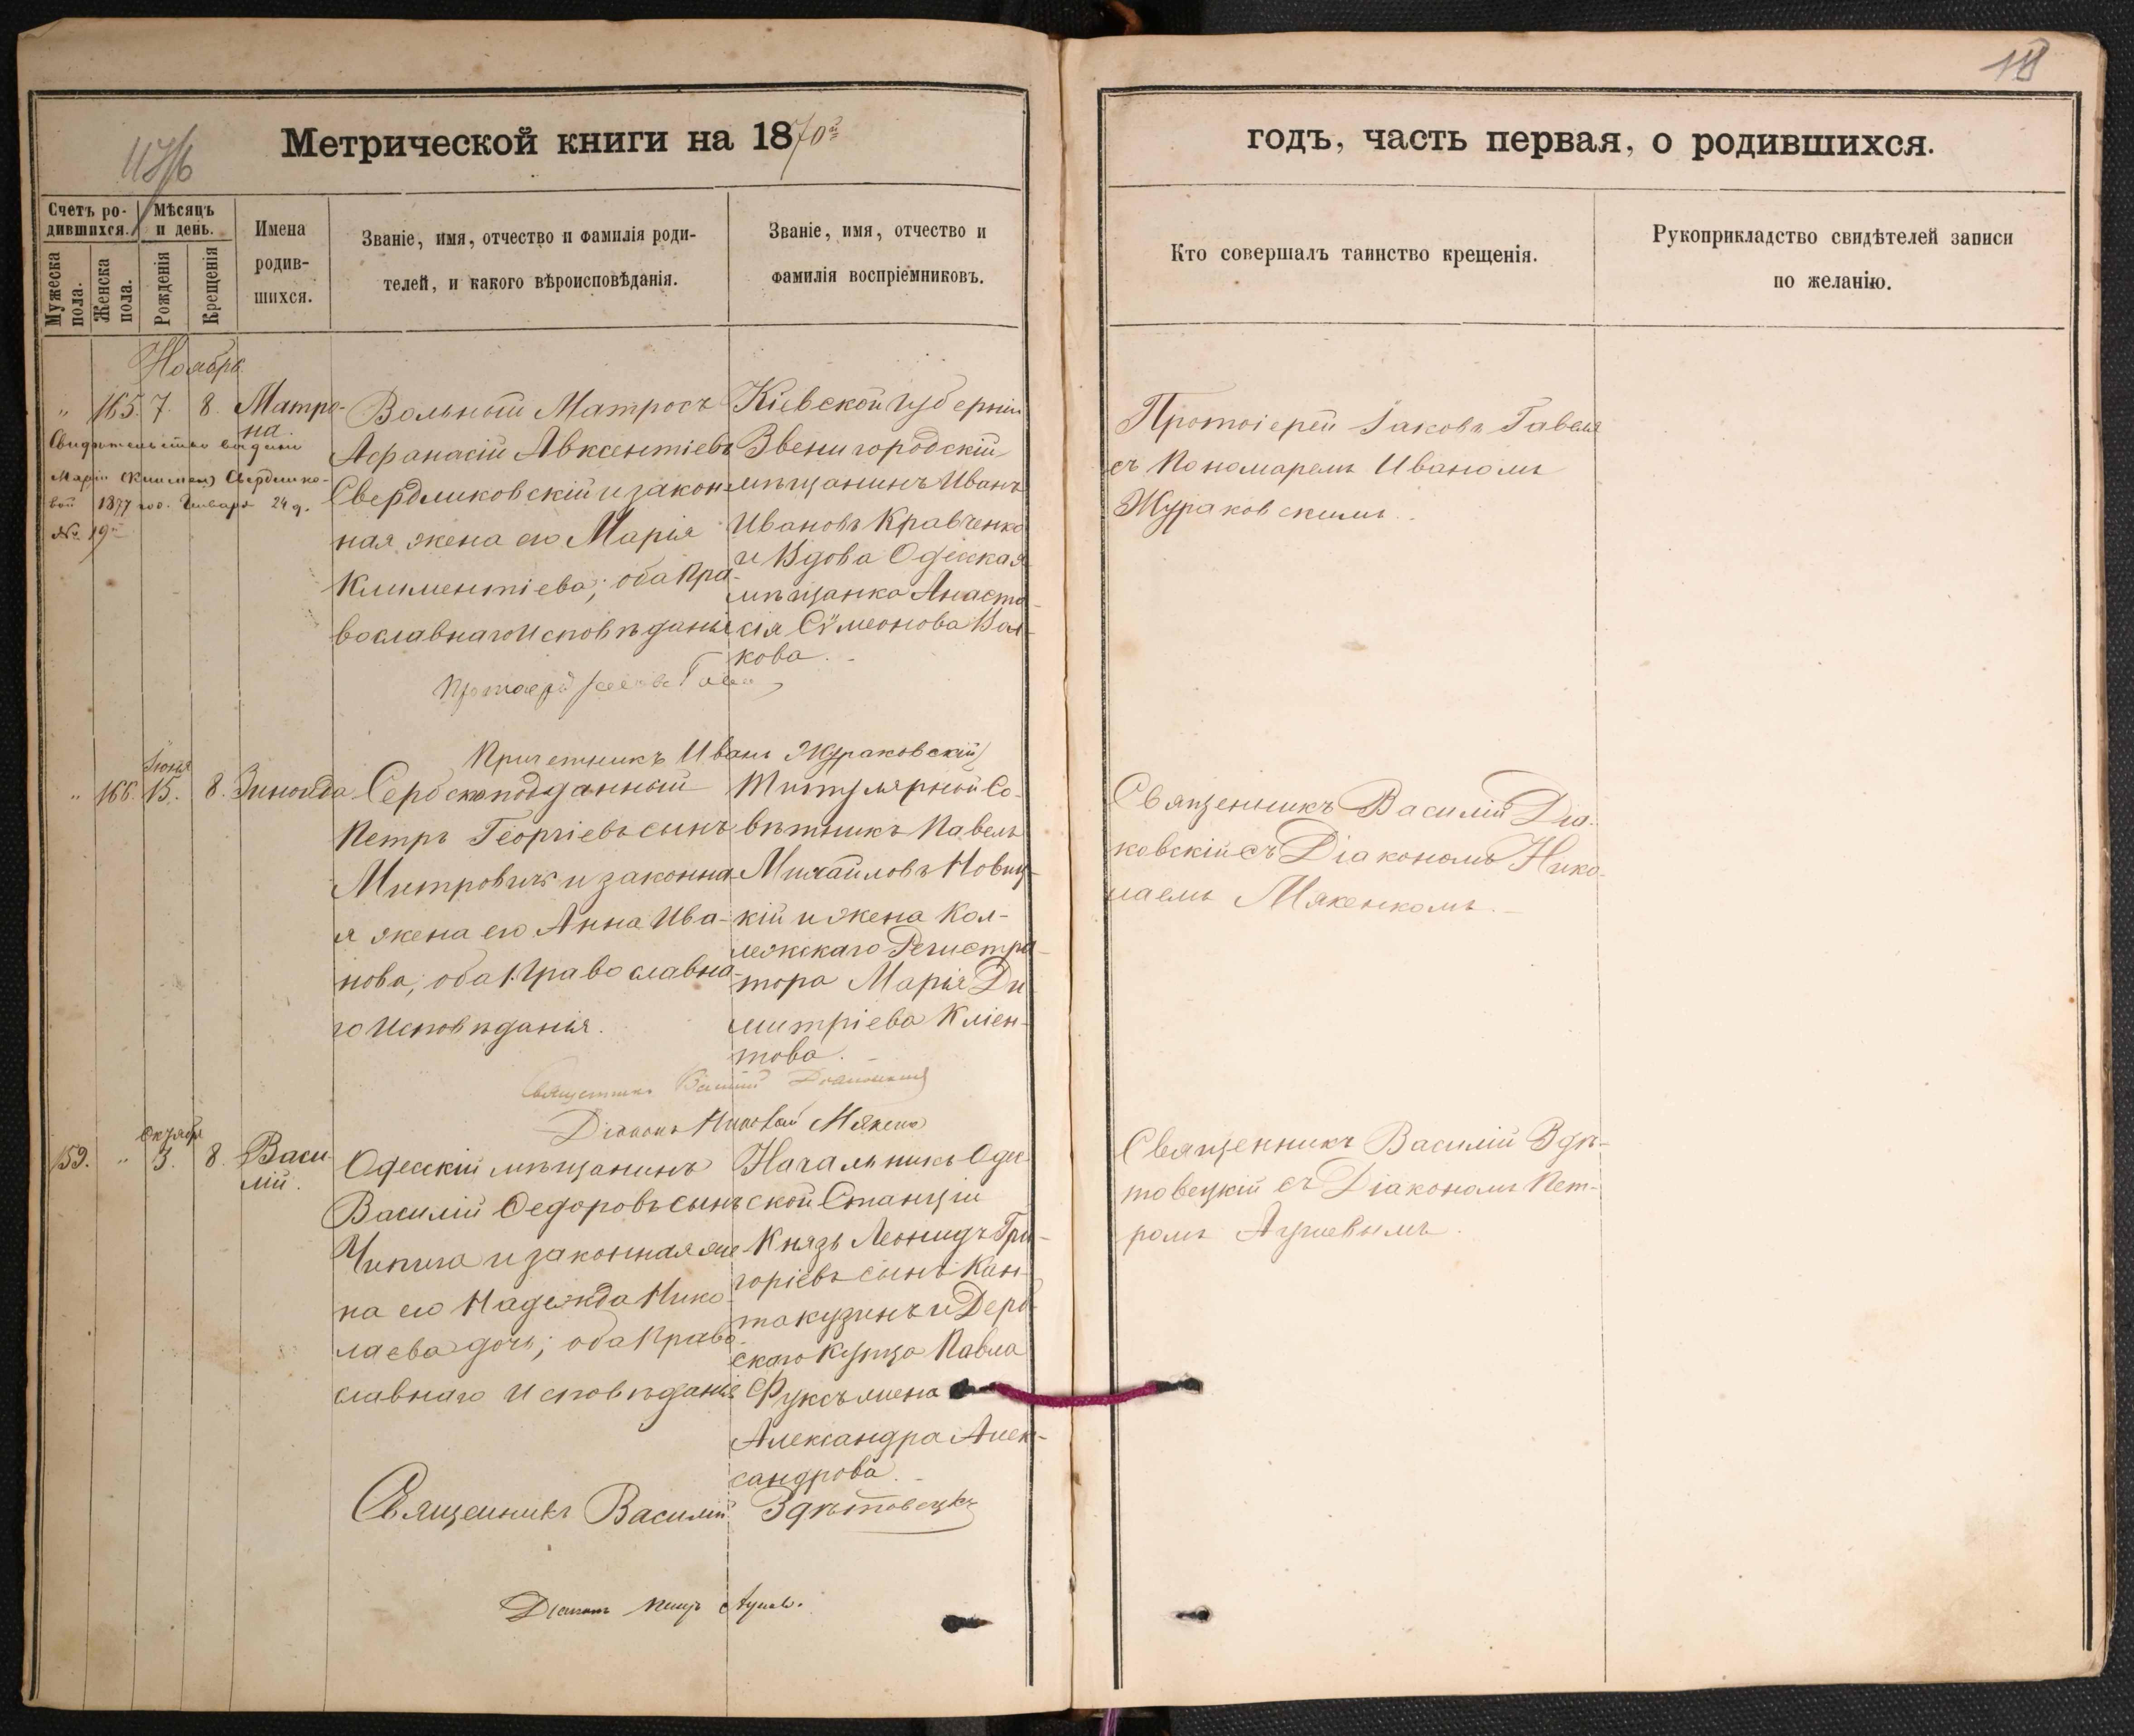 18
Метрической книги на 1870й
годъ, часть первая, о родившихся.
Счетъ ро-
дившихся.
Мужеска
пола.
Женска
пола.
Мѣсяцъ
и день.
Рожденія
Крещенія
Имена
родив-
шихся.
Званіе, имя, отчество и фамилія роди-
телей, и какого вѣроисповѣданія.
Званіе, имя, отчество и
фамилія воспріемниковъ.
Кто совершалъ таинство крещенія.
Рукоприкладство свидѣтелей записи
по желанію.
Ноябрь
" 165. 7. 8. Матро-
на.
Свидѣтельство выдано
Маріи
1877 Января 24 д.
№ 19
Вольный Матросъ
Афанасій Авксентіевъ
Свердликовскій и закон-
ная жена его Марія
Климентіева; оба Пра-
вославнаго Исповѣданія
Кіевской губерніи
Звенигородскій
мѣщанинъ Иванъ
Ивановъ Кравченко
и Вдова Одесская
мѣщанка Анаста-
сія Сѵмеонова Вол-
кова.
Протоіерей Іаковъ Гавел
съ Пономаремъ Иваномъ
Жураковскимъ.
Причетникъ Иванъ Жураковскій
Іюня
" 166. 15. 8. Зинаида
Сербскоподданный
Петръ Георгіевъ сынъ
Митровичъ и законна-
я жена его Анна Ива-
нова, оба Православна-
го Исповѣданія.
Титулярный Со-
вѣтникъ Павелъ
Михайловъ Новиц-
кій и жена Кол-
лежскаго Регистра-
тора Марія Ди-
митріева Кліен-
това.
Священникъ Василій Діа-
ковскій съ Діакономъ Нико-
лаемъ Мякенкомъ.
Священникъ Василій
Діаконъ Николай Мякенко
Октября
159. " 3. 8. Васи-
лій.
Одесскій мѣщанинъ
Василій Ѳедоровъ сынъ
Чипига и законная же-
на его Надежда Нико-
лаева дочь; оба Право-
славнаго Исповѣданія
Начальникъ Одес-
ской Станціи
Князь Леонидъ Гри-
горіевъ сынъ Кан-
такузинъ и Дерб-
скаго Купца Павла
Фуксъ жена
Александра Алек-
сандрова.
Священникъ Василій Здѣ-
товецкій съ Діакономъ Пет-
ромъ
Священникъ Василій Здѣтовецкъ